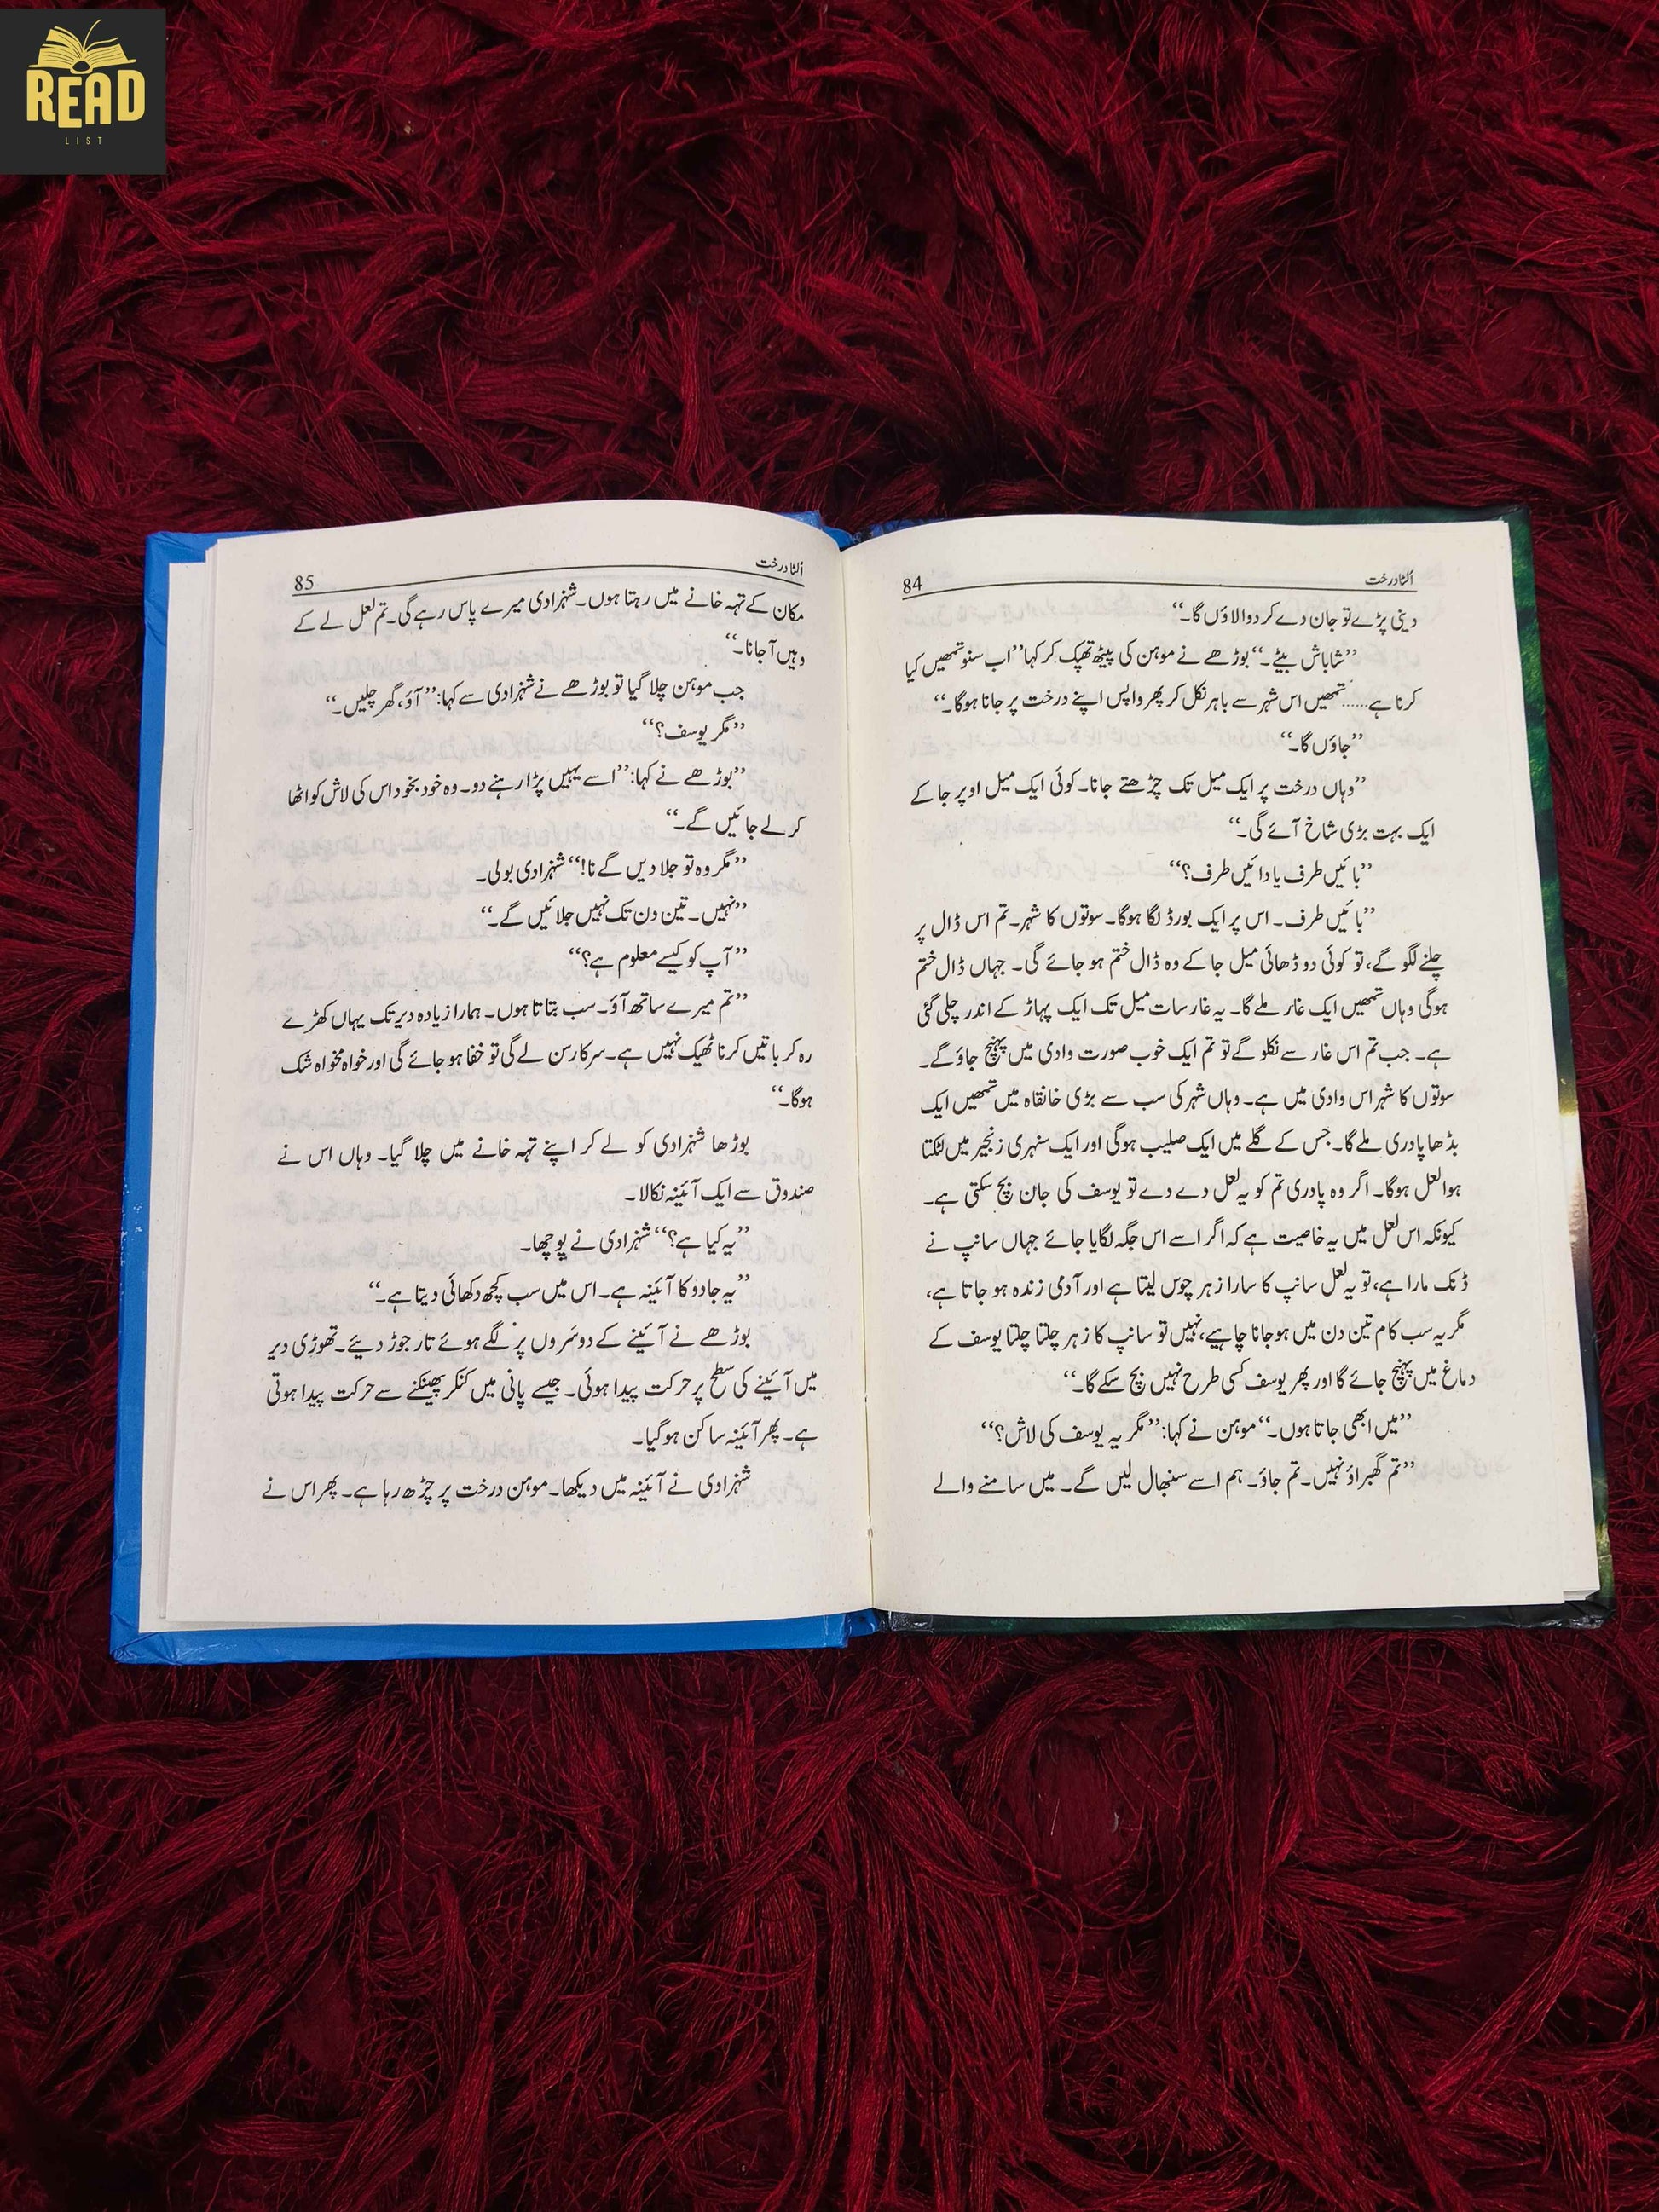 READ
LIST
اُلٹا درخت
84
دینی پڑے تو جان دے کر دوا لاؤں گا۔‘‘
’’شاباش بیٹے۔‘‘ بوڑھے نے موہن کی پیٹھ تھپک کر کہا ’’اب سنو تمھیں کیا
کرنا ہے...... تمھیں اس شہر سے باہر نکل کر پھر واپس اپنے درخت پر جانا ہوگا۔‘‘
’’جاؤں گا۔‘‘
’’وہاں درخت پر ایک میل تک چڑھتے جانا۔ کوئی ایک میل اوپر جا کے
ایک بہت بڑی شاخ آئے گی۔‘‘
’’بائیں طرف یا دائیں طرف؟‘‘
’’بائیں طرف۔ اس پر ایک بورڈ لگا ہوگا۔ سوتوں کا شہر۔ تم اس ڈال پر
چلنے لگو گے، تو کوئی دو ڈھائی میل جا کے وہ ڈال ختم ہو جائے گی۔ جہاں ڈال ختم
ہوگی وہاں تمھیں ایک غار ملے گا۔ یہ غار سات میل تک ایک پہاڑ کے اندر چلی گئی
ہے۔ جب تم اس غار سے نکلو گے تو تم ایک خوب صورت وادی میں پہنچ جاؤ گے۔
سوتوں کا شہر اس وادی میں ہے۔ وہاں شہر کی سب سے بڑی خانقاہ میں تمھیں ایک
بڈھا پادری ملے گا۔ جس کے گلے میں ایک صلیب ہوگی اور ایک سنہری زنجیر میں لٹکتا
ہوا لعل ہوگا۔ اگر وہ پادری تم کو یہ لعل دے دے تو یوسف کی جان بچ سکتی ہے۔
کیونکہ اس لعل میں یہ خاصیت ہے کہ اگر اسے اس جگہ لگایا جائے جہاں سانپ نے
ڈنک مارا ہے، تو یہ لعل سانپ کا سارا زہر چوس لیتا ہے اور آدمی زندہ ہو جاتا ہے،
مگر یہ سب کام تین دن میں ہو جانا چاہیے، نہیں تو سانپ کا زہر چلتا چلتا یوسف کے
دماغ میں پہنچ جائے گا اور پھر یوسف کسی طرح نہیں بچ سکے گا۔‘‘
’’میں ابھی جاتا ہوں۔‘‘ موہن نے کہا: ’’مگر یہ یوسف کی لاش؟‘‘
’’تم گھبراؤ نہیں۔ تم جاؤ۔ ہم اسے سنبھال لیں گے۔ میں سامنے والے
اُلٹا درخت
85
مکان کے تہہ خانے میں رہتا ہوں۔ شہزادی میرے پاس رہے گی۔ تم لعل لے کے
وہیں آ جانا۔‘‘
جب موہن چلا گیا تو بوڑھے نے شہزادی سے کہا: ’’آؤ، گھر چلیں۔‘‘
’’مگر یوسف؟‘‘
’’بوڑھے نے کہا: ’’اسے یہیں پڑا رہنے دو۔ وہ خود بخود اس کی لاش کو اٹھا
کر لے جائیں گے۔‘‘
’’مگر وہ تو جلا دیں گے نا!‘‘ شہزادی بولی۔
’’نہیں۔ تین دن تک نہیں جلائیں گے۔‘‘
’’آپ کو کیسے معلوم ہے؟‘‘
’’تم میرے ساتھ آؤ۔ سب بتاتا ہوں۔ ہمارا زیادہ دیر تک یہاں کھڑے
رہ کر باتیں کرنا ٹھیک نہیں ہے۔ سرکار سن لے گی تو خفا ہو جائے گی اور خواہ مخواہ شک
ہوگا۔‘‘
بوڑھا شہزادی کو لے کر اپنے تہہ خانے میں چلا گیا۔ وہاں اس نے
صندوق سے ایک آئینہ نکالا۔
’’یہ کیا ہے؟‘‘ شہزادی نے پوچھا۔
’’یہ جادو کا آئینہ ہے۔ اس میں سب کچھ دکھائی دیتا ہے۔‘‘
بوڑھے نے آئینے کے دو سروں پر لگے ہوئے تار جوڑ دیئے۔ تھوڑی دیر
میں آئینے کی سطح پر حرکت پیدا ہوئی۔ جیسے پانی میں کنکر پھینکنے سے حرکت پیدا ہوتی
ہے۔ پھر آئینہ ساکن ہو گیا۔
شہزادی نے آئینہ میں دیکھا۔ موہن درخت پر چڑھ رہا ہے۔ پھر اس نے